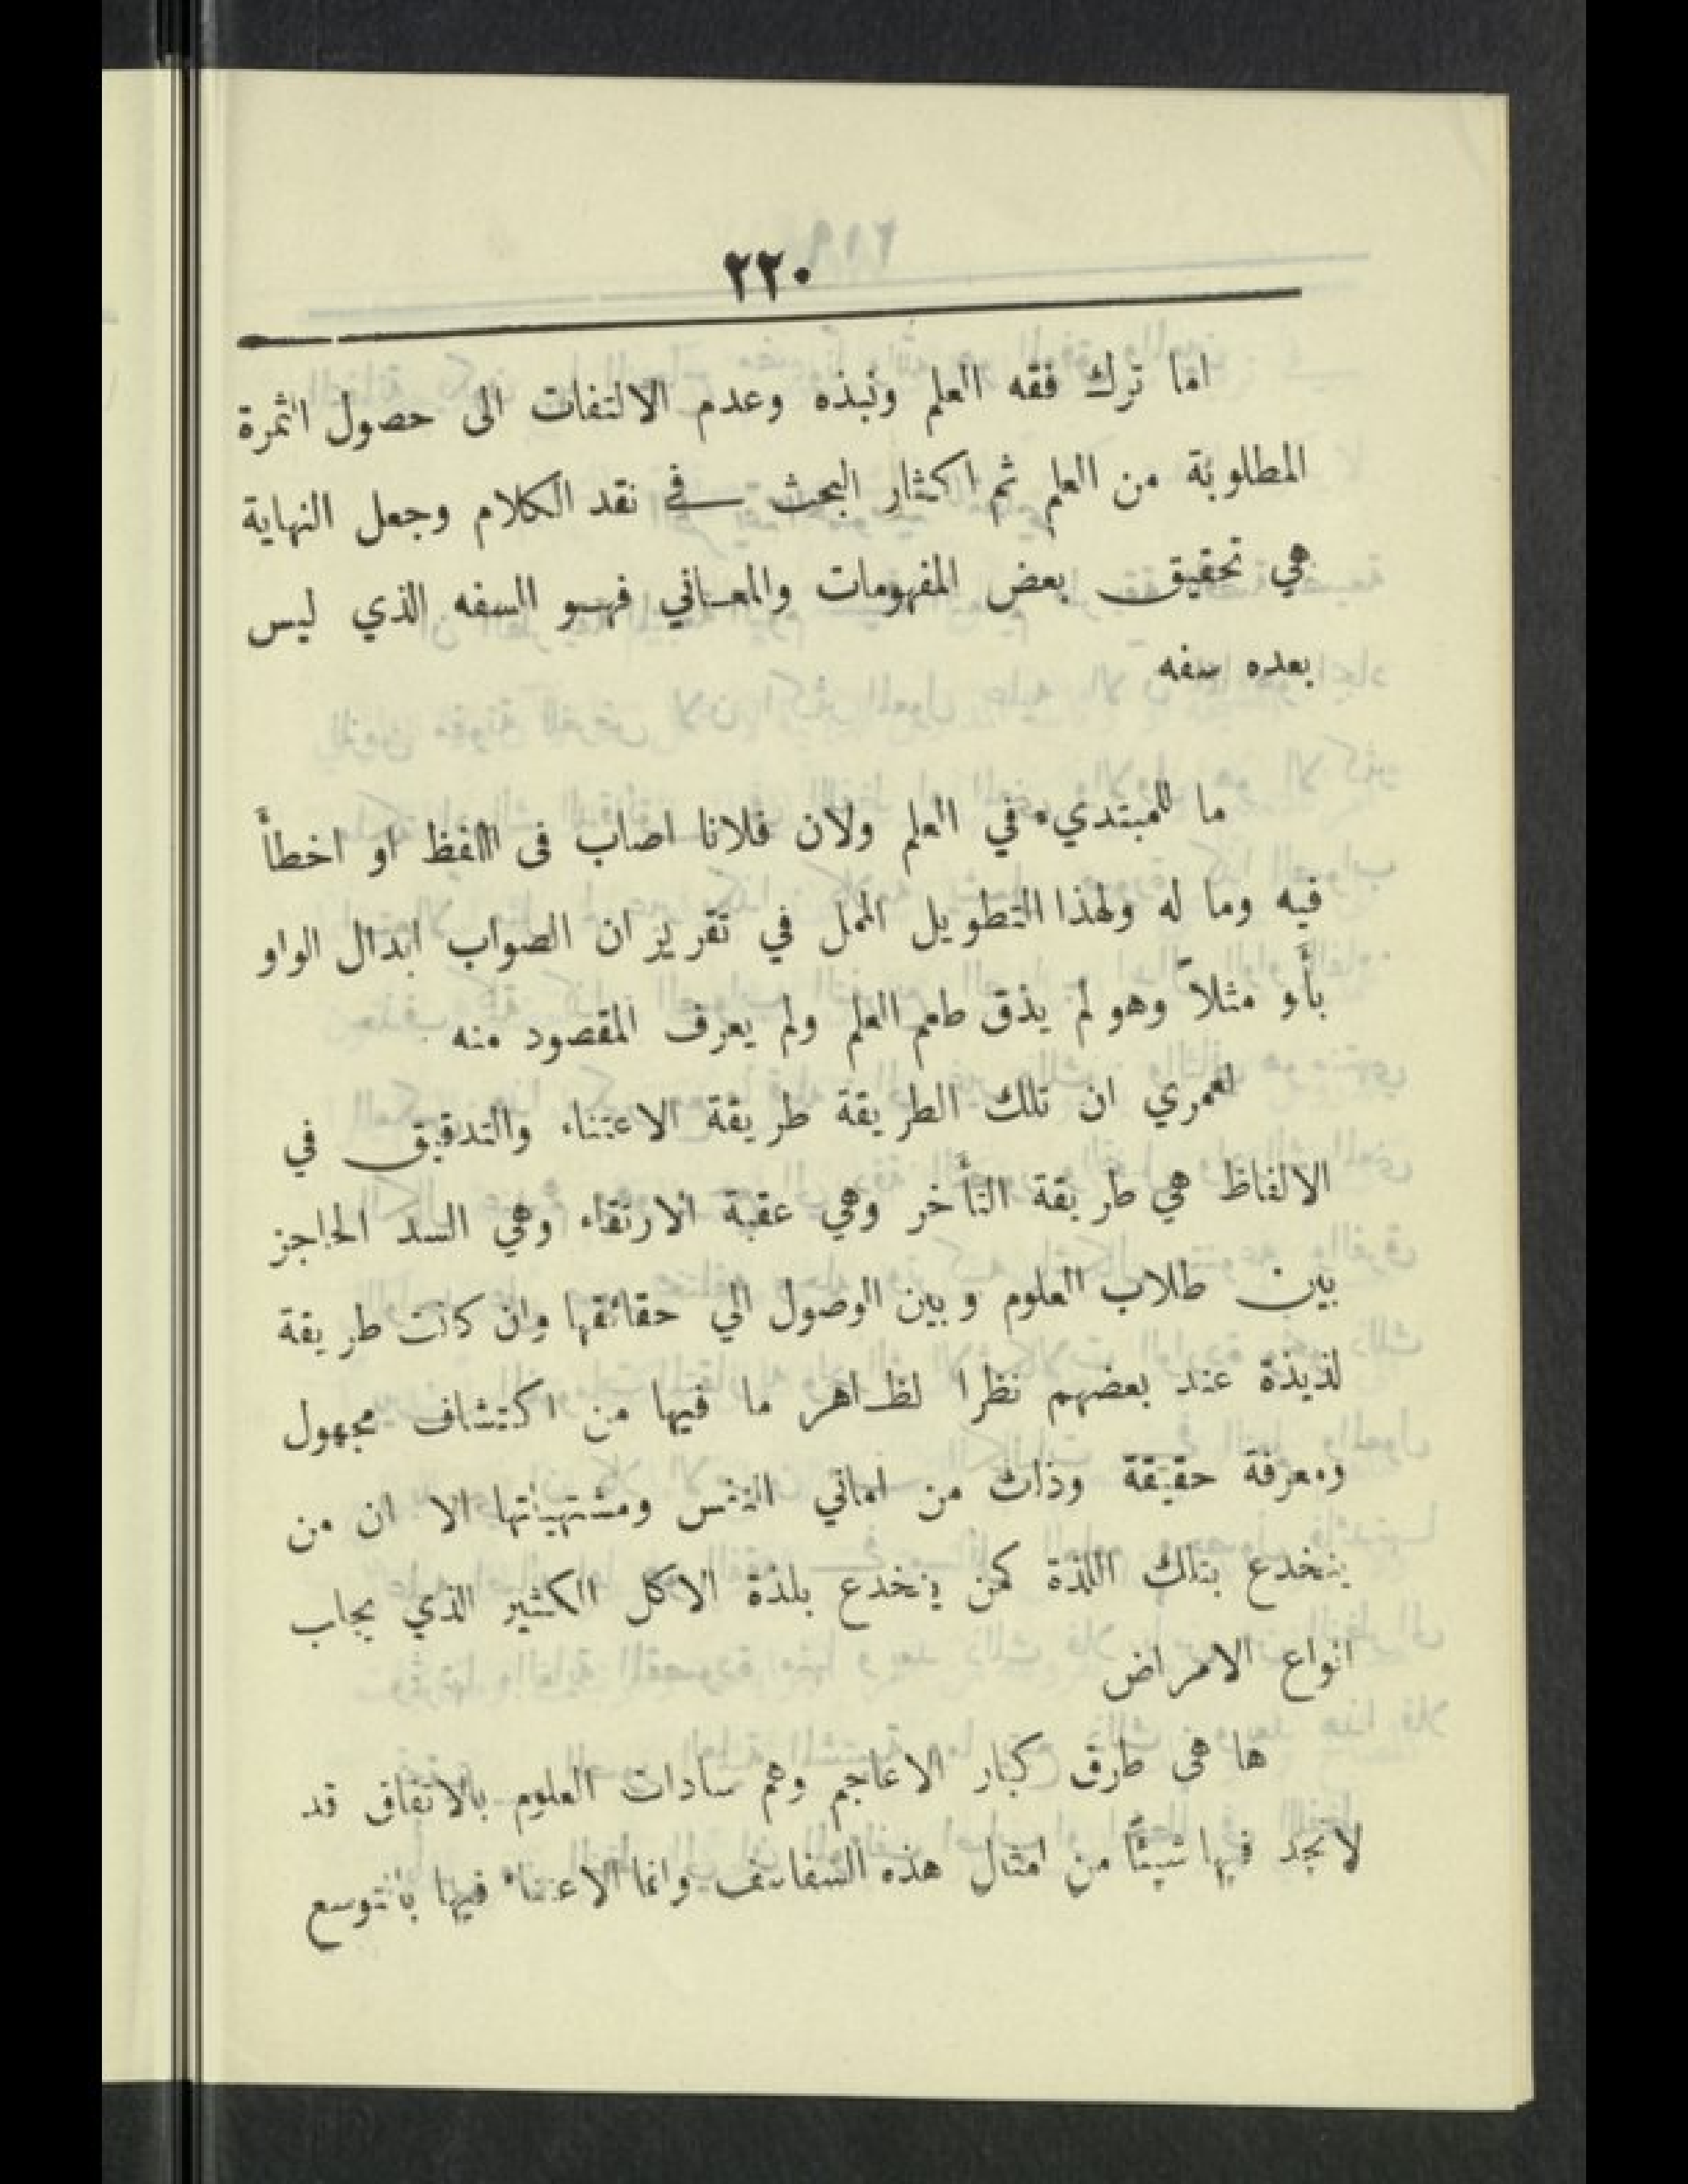 ٢٢٠
اما ترك فقه العلم ونبذه وعدم الالتفات الى حصول الثمرة
المطلوبة من العلم ثم اكثار البحث في نقد الكلام وجعل النهاية
هي تحقيق بعض المفهومات والمعاني فهو السفه الذي ليس
بعده سفه
ما للمبتديء في العلم ولان فلانا اصاب فى اللفظ او اخطأ
فيه وما له ولهذا التطويل الممل في تقرير ان الصواب ابدال الواو
بأو مثلاً وهو لم يذق طعم العلم ولم يعرف المقصود منه
لعمري ان تلك الطريقة طريقة الاعتناء والتدقيق في
الالفاظ هي طريقة التأخر وهي عقبة الارتقاء وهي السد الحاجز
بين طلاب العلوم وبين الوصول الي حقائقها وان كانت طريقة
لذيذة عند بعضهم نظرا لظاهر ما فيها من اكتشاف مجهول
ومعرفة حقيقة وذاك من اماني النفس ومشتهياتها الا ان من
ينخدع بتلك اللذة كمن ينخدع بلذة الاكل الكثير الذي يجلب
انواع الامراض
ها هي طرق كبار الاعاجم وهم سادات العلوم بالاتفاق قد
لا يجد فيها شيئاً من امثال هذه السفاسف وانما الاعتناء فيها بالتوسع